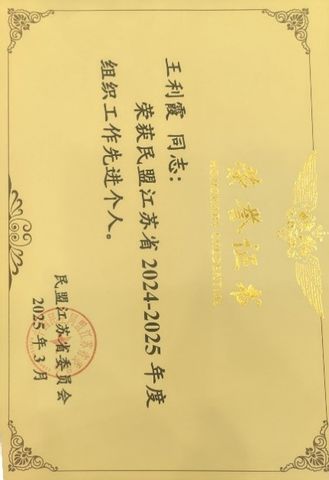 荣誉证书
HONORARY CREDENTIAL
王利霞 同志：
荣获民盟江苏省2024-2025年度
组织工作先进个人。
民盟江苏省委员会
2025年3月